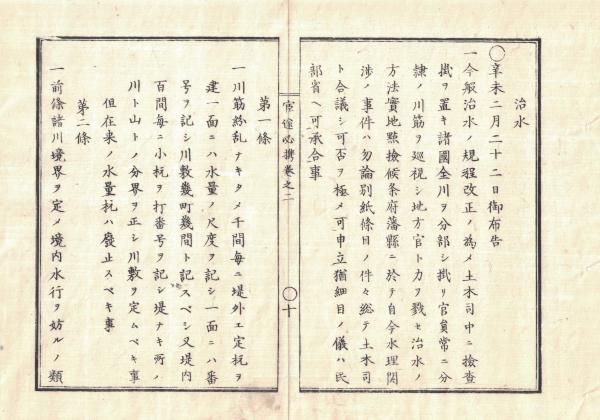 治水
〇辛未二月二十二日御布告
一今般治水ノ規程改正ノ為メ土木司中ニ檢査
掛ヲ置キ諸國全川ヲ分部シ掛リ官員常ニ分
隷ノ川筋ヲ巡視シ地方官ト力ヲ戮セ治水ノ
方法實地點撿候条府藩縣ニ於テ自今水理関
渉ノ事件ハ勿論別紙條目ノ件々総テ土木司
ト合議シ可否ヲ極メ可申立猶細目ノ儀ハ民
部省ヘ可承合事
官途必携巻之二
〇十
第一條
一川筋紛乱ナキタメ千間毎ニ堤外エ定杭ヲ
建一面ニハ水量ノ尺度ヲ記シ一面ニハ番
号ヲ記シ川敷幾町幾間ト記スベシ又堤内
百間毎ニ小杭ヲ打番号ヲ記シ堤ナキ所ノ
川ト山トノ分界ヲ正シ川敷ヲ定ムベキ事
但在来ノ水量杭ハ廢止スベキ事
第二條
一前條諸川境界ヲ定メ境内水行ヲ妨ルノ類